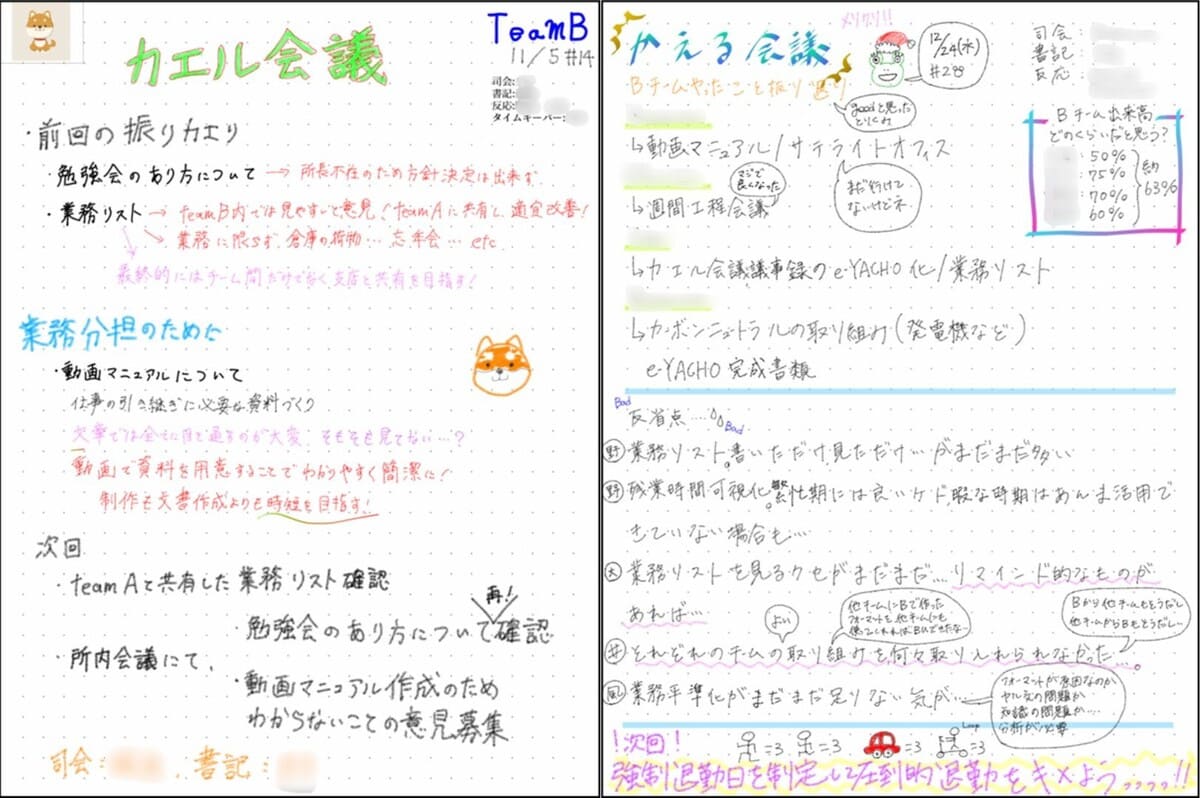 カエル会議
TeamB
11/5 #14
司会:
書記:
反応:
タイムキーパー:
・前回の振りカエリ
・勉強会のあり方について → 所長不在のため方針決定は出来ず.
・業務リスト → teamB内では見やすいと意見! teamAに共有し、適宜改善!
業務に限らず 倉庫の荷物… 忘年会… etc
最終的にはチーム間だけでなく支店と共有を目指す!
業務分担のために
・動画マニュアルについて
仕事の引き継ぎに必要な資料づくり
文章では全てに目を通すのが大変. そもそも見てない…?
動画で資料を用意することでわかりやすく簡潔に!
制作も文書作成よりも時短を目指す!!
次回
・teamAと共有した業務リスト確認
再!
勉強会のあり方について確認
・所内会議にて、
・動画マニュアル作成のため
わからないことの意見募集
司会: . 書記:
かえる会議
メリクリ!!
12/24(水)
#20
司会:
書記:
反応:
Bチームやったこと振り返り
goodと思った
とりくみ
↳動画マニュアル/サテライトオフィス
マジで
良くなった
まだ行けて
ないけどネ
↳週間工程会議
↳カエル会議議事録のe-YACHO化/業務リスト
↳カーボンニュートラルの取り組み(発電機など)
e-YACHO完成書類
Bチーム出来高
どのくらいだと思う?
:50%
:75%
:70%
:60%
約
63%
Bad
反省点…
Bad
野 業務リスト書いただけ見ただけ…がまだまだ多い
野 残業時間可視化繁忙期には良いケド、暇な時期はあんま活用で
きていない場合も…
大 業務リストを見るクセがまだまだ… リマインド的なものが
あれば…
よい
他チームにBで作った
フォーマットを他チームにも
Bから他チームもそうだし
他チームからBもそうだし…
井 それぞれのチームの取り組みを何々取り入れられなかった…
風 業務平準化がまだまだ足りない気が…
フォーマットが原因なのか
ヤル気の問題か
知識の問題か…
分析が必要
!次回!
=3 =3 =3 =3
強制退勤日を制定して圧倒的退勤をキメよう!!